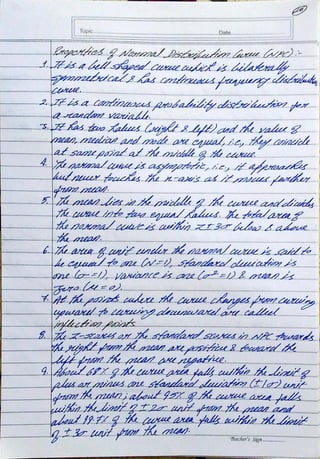 Topic Date
Properties of Normal Distribution Curve (NPC) :-
1. It is a bell shaped curve which is bilaterally
symmetrical & has continuous frequency distribution
curve.
2. It is a continuous probability distribution for
a random variable.
3. It has two halves (right & left) and the value of
mean, median and mode are equal, i.e, they coincide
at same point at the middle of the curve.
4. The normal curve is asymptotic, i.e, it approaches
but never touches the x-axis as it moves farther
from mean.
5. The mean lies in the middle of the curve and divides
the curve into two equal halves. The total area of
the normal curve is within Z±3σ below & above
the mean.
6. The area of unit under the normal curve is said to
be equal to one (N=1), standard deviation is
one (σ=1), variance is one (σ²=1) & mean is
zero (μ=0).
7. At the points where the curve changes from curving
upward to curving downward are called
inflection points.
8. The z-scores or the standard scores in NPC towards
the right from the mean are positive & toward the
left from the mean are negative.
9. About 68% of the curve area falls within the limit of
plus or minus one standard deviation (±1σ) unit
from the mean; about 95% of the curve area falls
within the limit of ±2σ unit from the mean and
about 99.7% of the curve area falls within the limit
of ±3σ unit from the mean.
Teacher's Sign